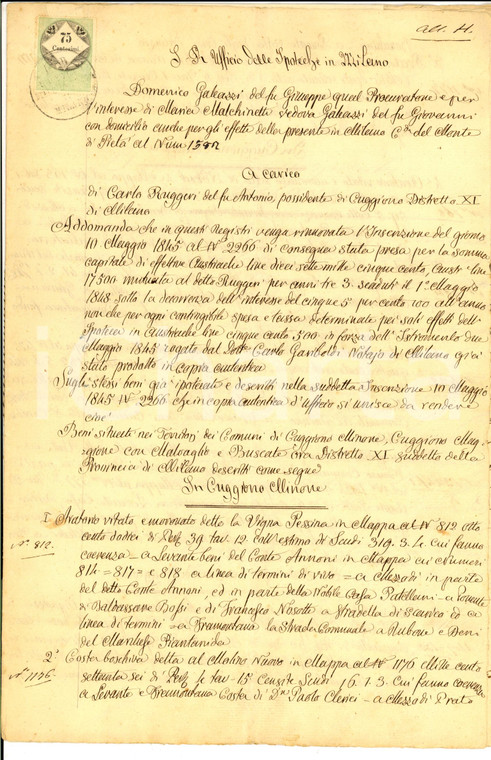 All. H.
75
Centesimi
I. R. Ufficio delle Ipoteche in Milano
Domenico Galeazzi del fu Giuseppe qual Procuratore e per
l'interesse di Maria Malchinetti vedova Galeazzi del fu Giovanni
con domicilio anche per gli effetti della presente in Milano C.da del Monte
di Pietà al Num. 1582
A carico
di Carlo Ruggeri del fu Antonio, possidente di Cuggiono Distretto XI
di Milano
Addomanda che in questi Registri venga rinnovata l'Inscrizione del giorno
10 Maggio 1845 al N° 2266 di consegna stata presa per la somma
capitale di effettive Austriache lire dieci sette mille cinque cento, Austr. lire
17500 mutuata al detto Ruggeri per anni tre 3 scaduti il 1° Maggio
1848 sotto la decorrenza dell'interesse del cinque 5 per cento 100 all'anno
non che per ogni contingibile spesa e tassa determinate pei soli effetti dell'
Ipoteca in Austriache lire cinque cento 500 in forza dell'Istromento due
Maggio 1845 rogato dal Dott. Carlo Garbolo Notajo di Milano già
stato prodotto in copia autentica
Sugli stessi beni già ipotecati e descritti nella suddetta Inscrizione 10 Maggio
1845 N° 2266 che in copia autentica d'Ufficio si unisce da rendere
cioè
Beni situati nei Territorj dei Comuni di Cuggiono Minore, Cuggiono Mag-
giore con Malvaglio e Buscate ora Distretto XI suddetto della
Provincia di Milano descritti come segue
In Cuggiono Minore
N° 812.
I. Aratorio vitato e moronato detto la Vigna Pessina in Mappa al N° 812 otto
cento dodici di Pert. 39 tav. 12 coll'estimo di Scudi 319. 3. 4 cui fanno
coerenza = a Levante beni del Conte Annoni in Mappa ai Numeri
814 = 817 = e 818 a linea di termini di vivo = a Mezzodì in parte
del detto Conte Annoni, ed in parte della Nobile Casa Patellani = a Ponente
di Baldassare Bossi e di Francesco Nasotti a Stradella di carico ed a
linea di termini = a Tramontana la Strada Comunale a Rubone e Beni
del Marchese Piantanida
N° 1176
2° Costa boschiva detta al Molino Nuovo in Mappa al N° 1176 Mille cento
settanta sei di Pert. tav. 15 Censite Scudi 16. 1. 3. cui fanno coerenza
a Levante e Tramontana Costa di Dn Paolo Clerici = a Mezzodì Prato